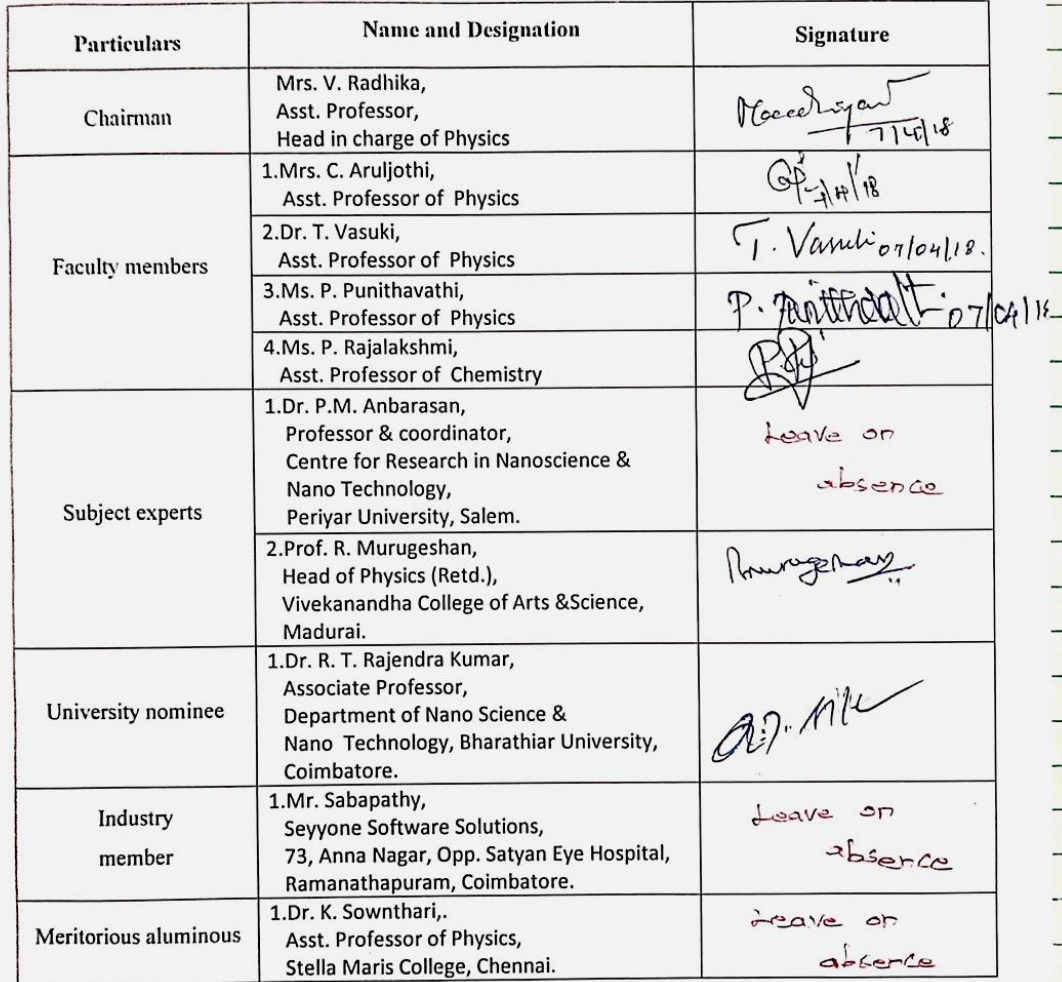 Particulars
Name and Designation
Signature
Chairman
Mrs. V. Radhika,
Asst. Professor,
Head in charge of Physics
7/4/18
Faculty members
1.Mrs. C. Aruljothi,
Asst. Professor of Physics
2.Dr. T. Vasuki,
Asst. Professor of Physics
T. Vasuki 07/04/18.
3.Ms. P. Punithavathi,
Asst. Professor of Physics
07/04/18
4.Ms. P. Rajalakshmi,
Asst. Professor of Chemistry
Subject experts
1.Dr. P.M. Anbarasan,
Professor & coordinator,
Centre for Research in Nanoscience &
Nano Technology,
Periyar University, Salem.
Leave on
absence
2.Prof. R. Murugeshan,
Head of Physics (Retd.),
Vivekanandha College of Arts &Science,
Madurai.
University nominee
1.Dr. R. T. Rajendra Kumar,
Associate Professor,
Department of Nano Science &
Nano Technology, Bharathiar University,
Coimbatore.
Industry
member
1.Mr. Sabapathy,
Seyyone Software Solutions,
73, Anna Nagar, Opp. Satyan Eye Hospital,
Ramanathapuram, Coimbatore.
Leave on
absence
Meritorious aluminous
1.Dr. K. Sownthari,.
Asst. Professor of Physics,
Stella Maris College, Chennai.
Leave on
absence